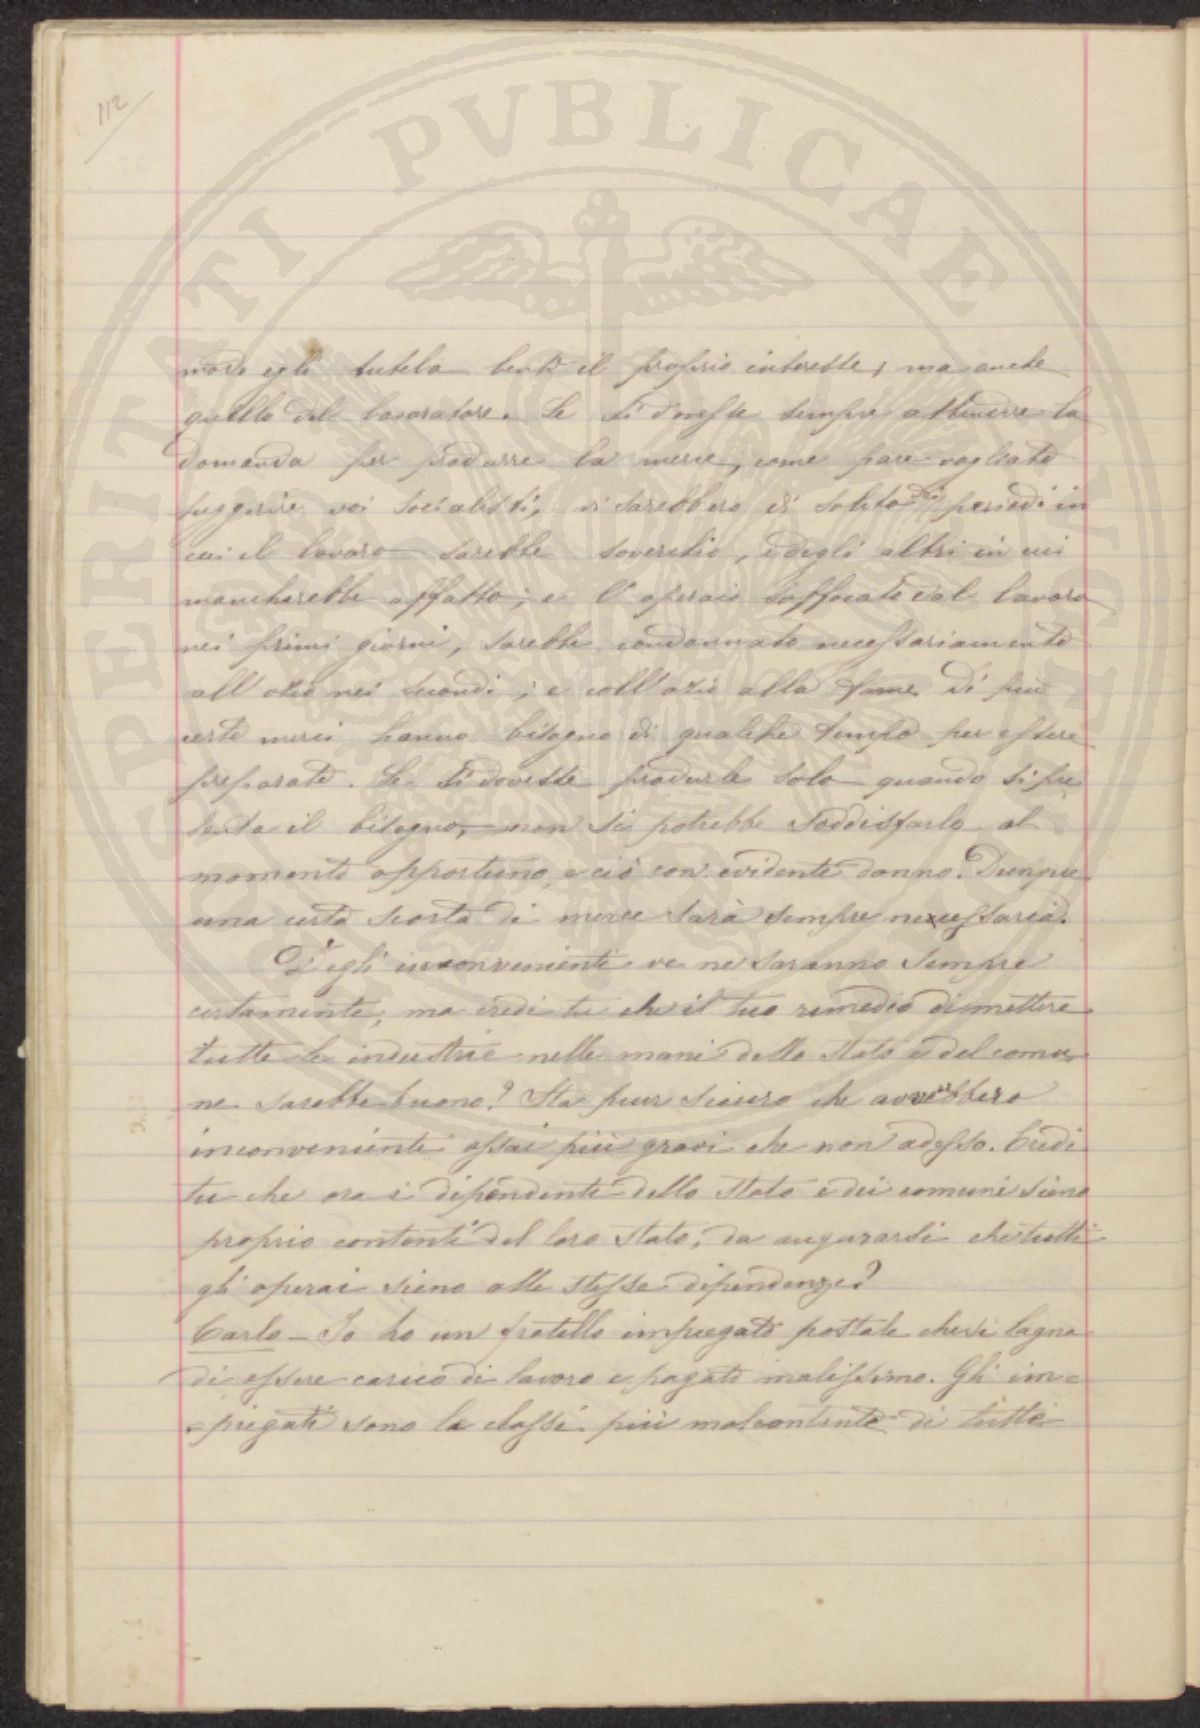 112
modo egli tutela tanto il proprio interesse, ma anche
quello del lavoratore. Se si dovesse sempre attendere la
domanda per produrre la merce, come pare vogliate
suggerire voi socialisti, vi sarebbero di solito dei periodi in
cui il lavoro sarebbe soverchio, e degli altri in cui
mancherebbe affatto; e l'operaio soffocato dal lavoro
nei primi giorni, sarebbe condannato necessariamente
all'ozio nei secondi; e coll'ozio alla fame. Di più
certe merci hanno bisogno di qualche tempo per essere
preparate. Se si dovesse produrle solo quando si pre
senta il bisogno, non si potrebbe soddisfarlo al
momento opportuno, e ciò con evidente danno. Dunque
una certa scorta di merce sarà sempre necessaria.
Degli inconvenienti ve ne saranno sempre
certamente, ma credi tu che il tuo rimedio di mettere
tutte le industrie nelle mani dello Stato e del comu
ne sarebbe buono? Sta pur sicuro che avverrebbero
inconvenienti assai più gravi che non adesso. Credi
tu che ora i dipendenti dello Stato e dei comuni sieno
proprio contenti del loro stato, da augurarsi che tutti
gli operai sieno alle stesse dipendenze?
Carlo - Io ho un fratello impiegato postale che si lagna
di essere carico di lavoro e pagato malissimo. Gli im=
=piegati sono le classi più malcontente di tutte
PERITATI PVBLICAE